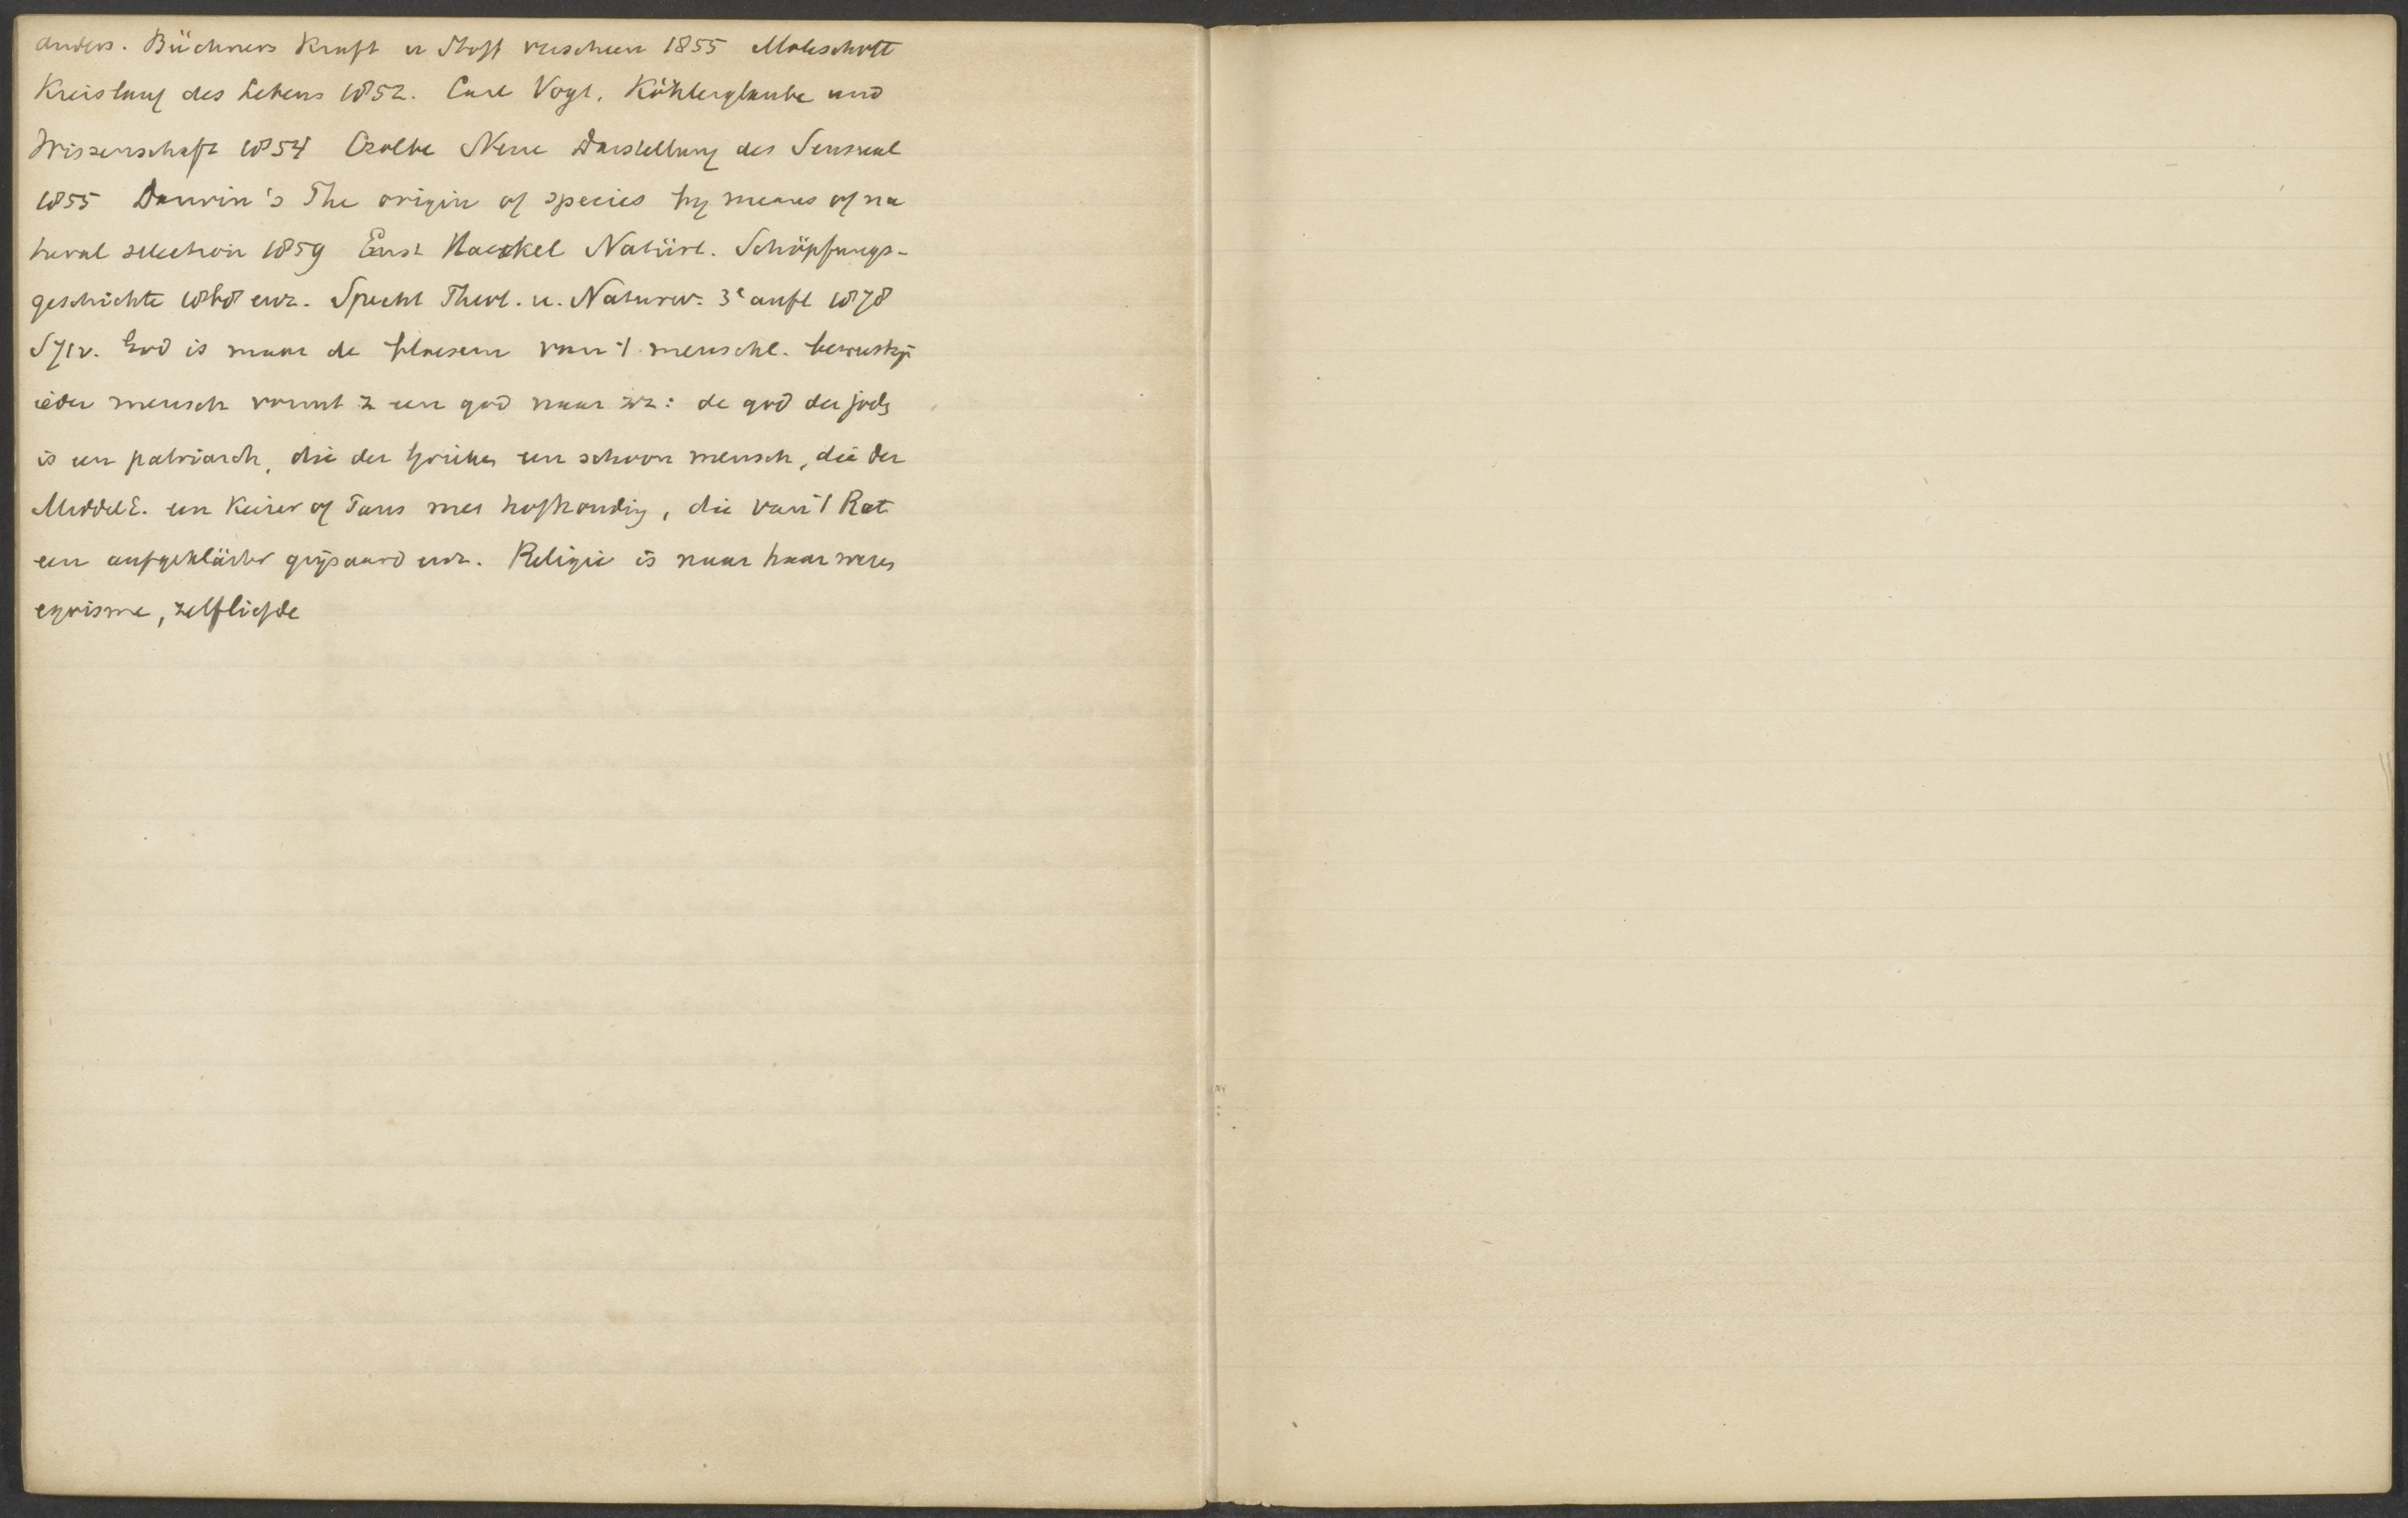 anders. Büchners Kraft u Stoff verscheen 1855 Moleschott
Kreislauf des Lebens 1852. Carl Vogt, Köhlerglaube und
Wissenschaft 1854 Czolbe Neue Darstellung des Sensual
1855 Darwin's The origin of species by means of na
tural selection 1859 Ernst Haeckel Natürl. Schöpfungs-
geschichte 1868 enz. Specht Theol. u. Naturw. 3e aufl 1878
God is maar de van 't menschl. bewustzijn
ieder mensch vormt z een god naar zich: de god der joden
is een patriarch, die der Grieken een schoon mensch, die der
MiddelE. een Keizer of Paus met hofhouding, die van 't Rat
een aufgeklärter grijsaard enz. Religie is naar haar wezen
egoisme, zelfliefde